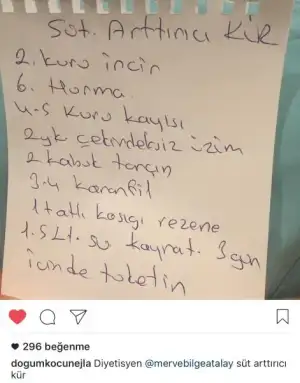 Süt. Arttırıcı KÜR
2. kuru incir
6. Hurma
4-5 Kuru kayısı
2yk çekirdeksiz üzüm
2 kabuk tarçın
3-4 karanfil
1 tatlı kaşığı rezene
1.5 Lt. su kaynat. 3 gün
içinde tüketin
296 beğenme
dogumkocunejla Diyetisyen @mervebilgeatalay süt arttırıcı
kür